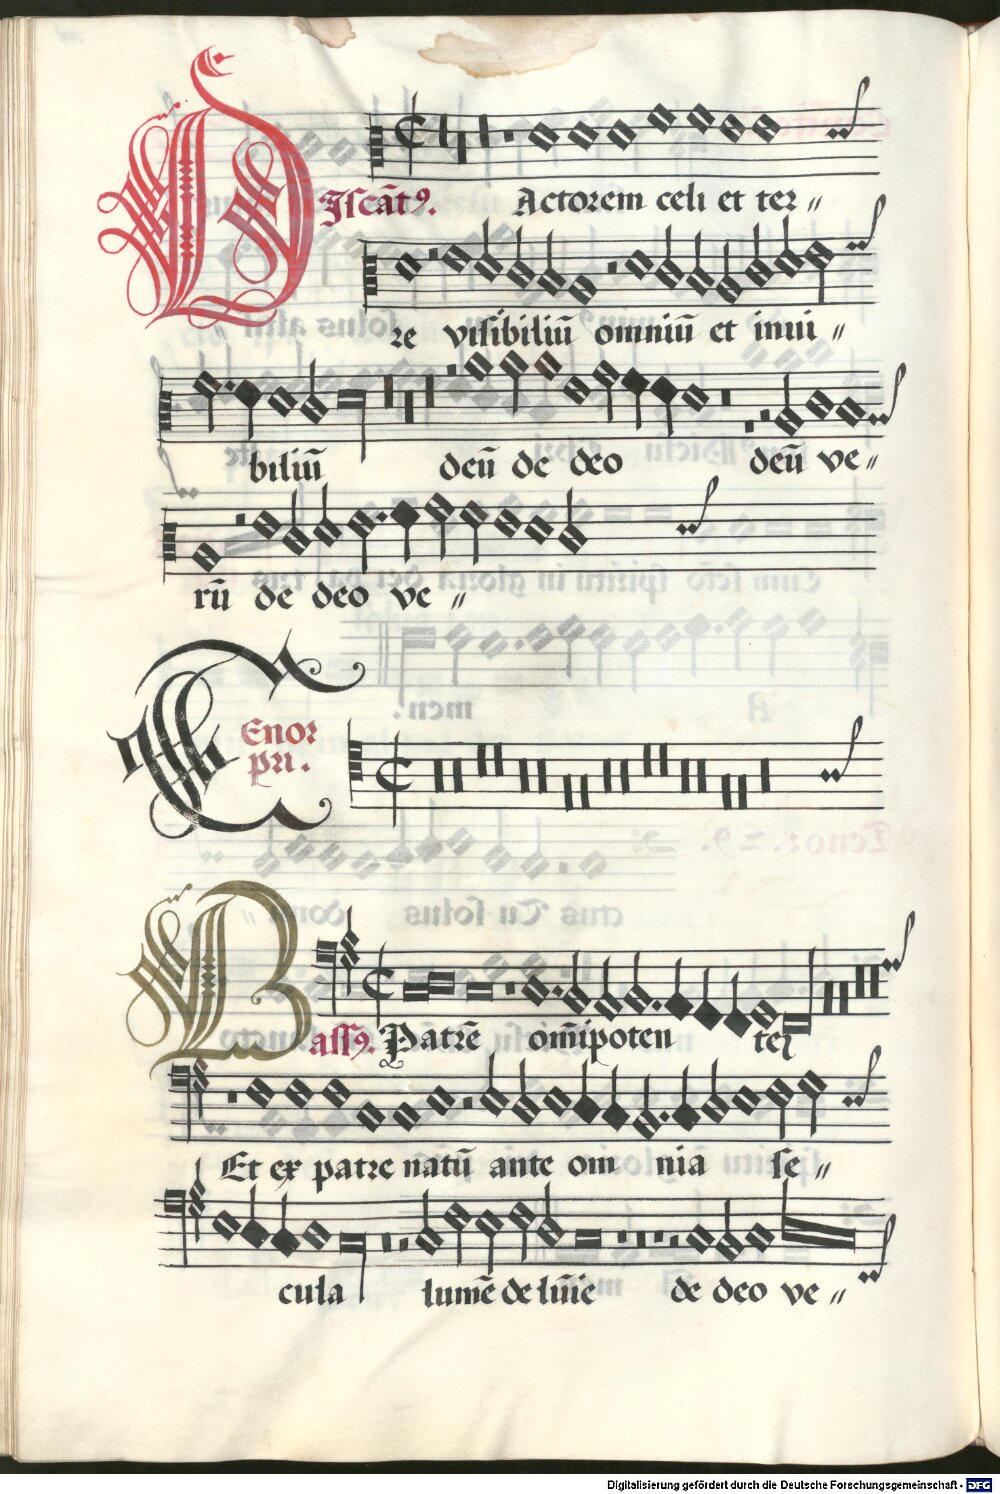 DIscãtꝯ. Actorem celi et ter〃
re visibiliũ omniũ et inui〃
biliũ deũ de deo deũ ve〃
rũ de deo ve〃
Tenor
pri.
Bassꝯ. Patrẽ om̃ipoten tem
Et ex patre natũ ante om nia se〃
cula lumẽ de lum̃ie de deo ve〃
Digitalisierung gefördert durch die Deutsche Forschungsgemeinschaft - DFG